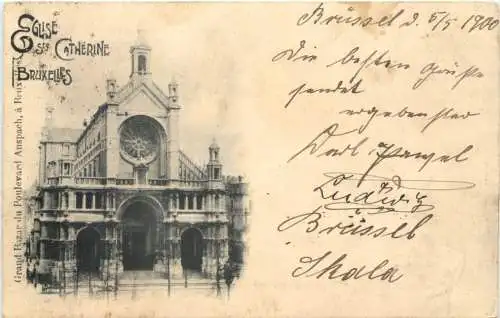 Eglise
Ste Catherine
Bruxelles
Grand Bazar du Boulevard Anspach, à Bruxelles
Brüssel d. 5/5 1900
Die besten Grüße
sendet
ergebenster
Karl
Ludwig
Brüssel
Skala